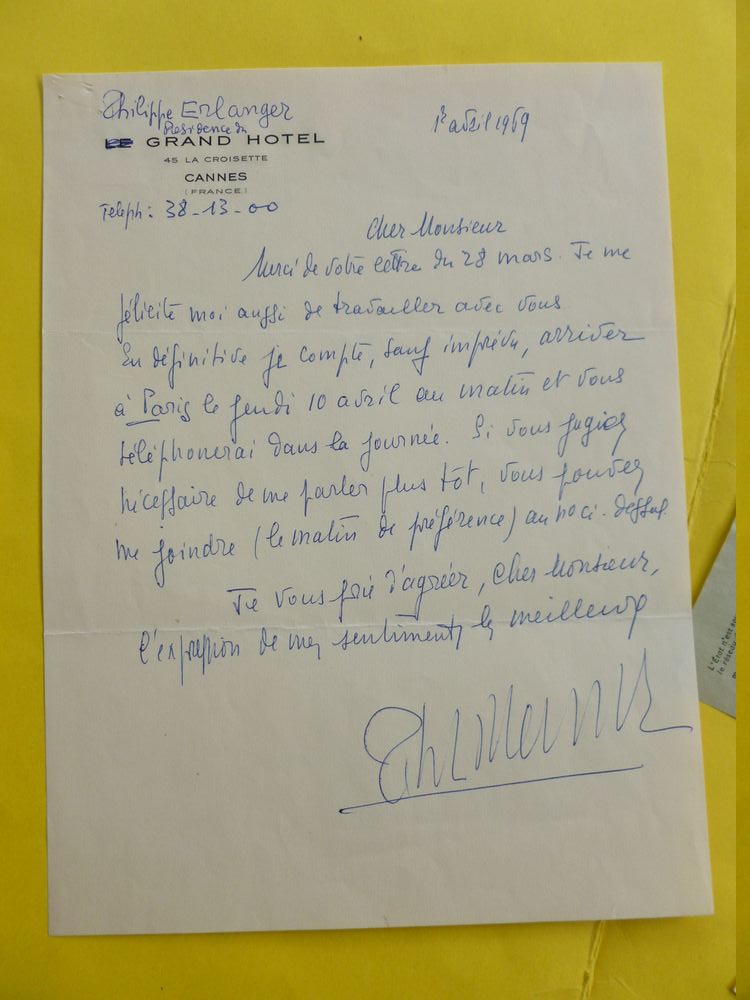 Philippe Erlanger
Résidence du
GRAND HOTEL
45 LA CROISETTE
CANNES
(FRANCE)
Téléph : 38-13-00
1er avril 1969
Cher Monsieur
Merci de votre lettre du 28 mars. Je me
félicite moi aussi de travailler avec vous
En définitive je compte, sauf imprévu, arriver
à Paris le jeudi 10 avril au matin et vous
téléphonerai dans la journée. Si vous jugiez
nécessaire de me parler plus tôt, vous pouvez
me joindre (le matin de préférence) au no ci-dessus.
Je vous prie d'agréer, Cher Monsieur,
l'expression de mes sentiments les meilleurs
L'État n'est
le résea